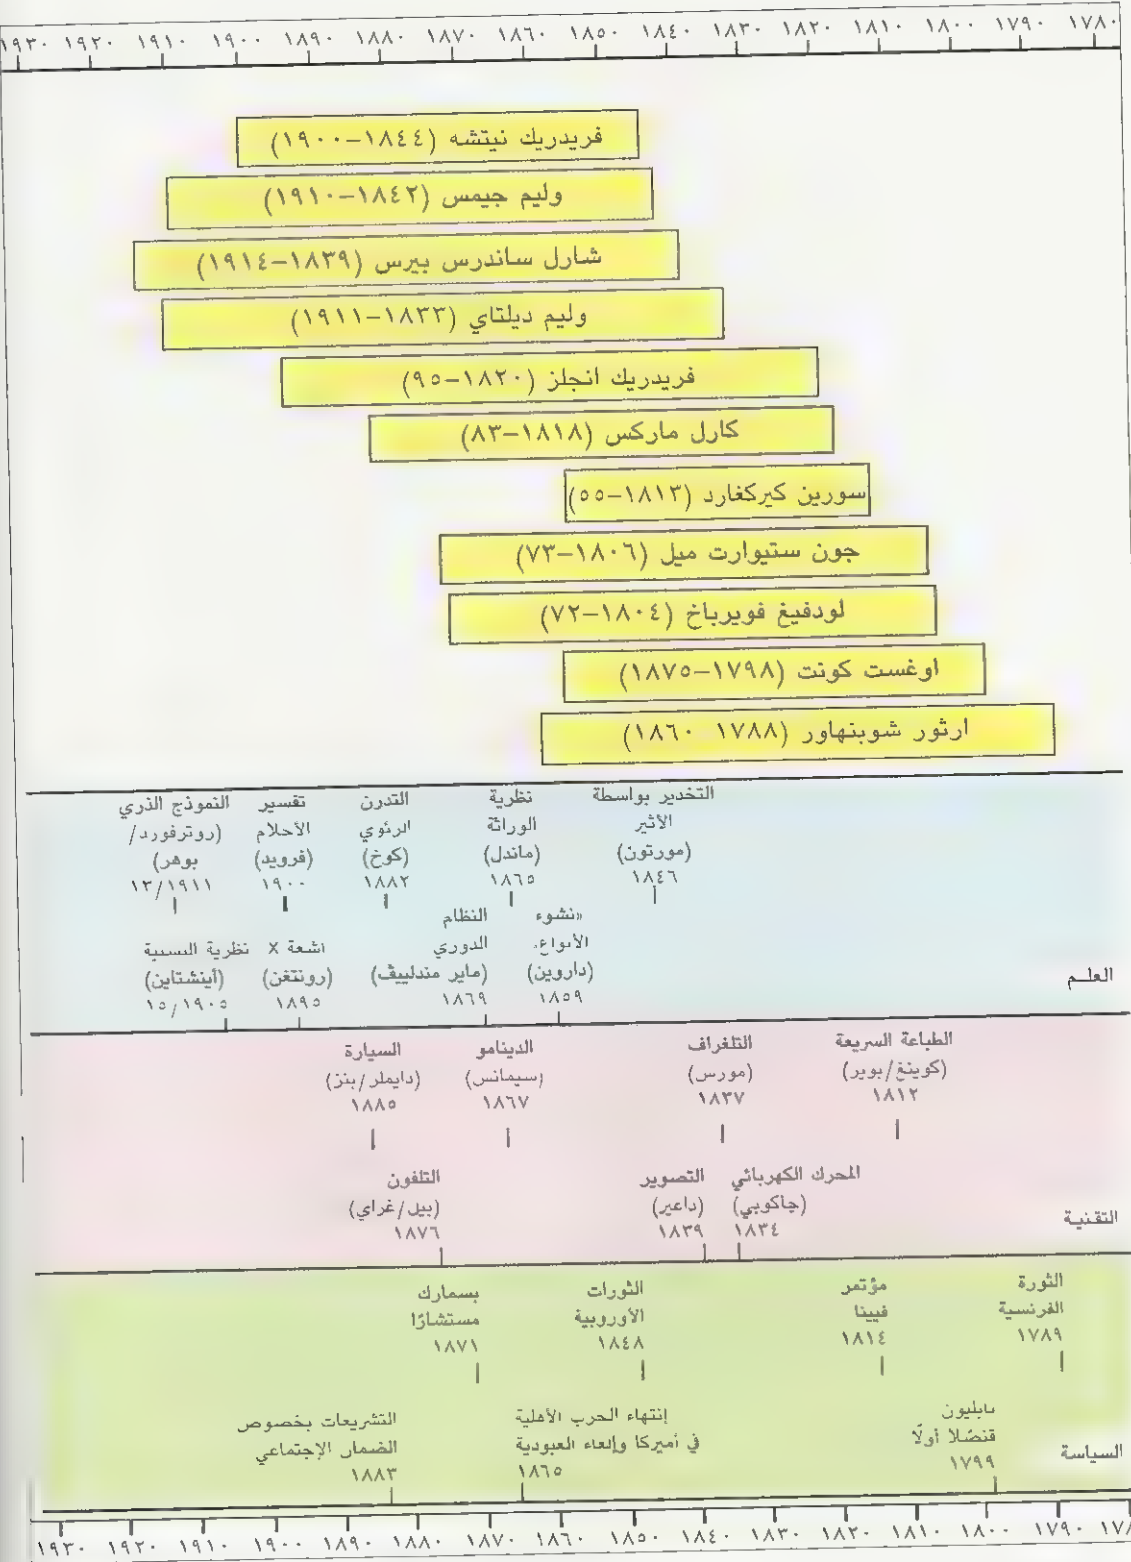 ١٧٨٠ ١٧٩٠ ١٨٠٠ ١٨١٠ ١٨٢٠ ١٨٣٠ ١٨٤٠ ١٨٥٠ ١٨٦٠ ١٨٧٠ ١٨٨٠ ١٨٩٠ ١٩٠٠ ١٩١٠ ١٩٢٠ ١٩٣٠
فريدريك نيتشه (١٨٤٤–١٩٠٠)
وليم جيمس (١٨٤٢–١٩١٠)
شارل ساندرس بيرس (١٨٣٩–١٩١٤)
وليم ديلتاي (١٨٣٣–١٩١١)
فريدريك انجلز (١٨٢٠–٩٥)
كارل ماركس (١٨١٨–٨٣)
سورين كيركغارد (١٨١٣–٥٥)
جون ستيوارت ميل (١٨٠٦–٧٣)
لودفيغ فويرباخ (١٨٠٤–٧٢)
اوغست كونت (١٧٩٨–١٨٧٥)
ارثور شوبنهاور (١٧٨٨ ١٨٦٠)
العلـم
التخدير بواسطة
الأثير
(مورتون)
١٨٤٦
نظرية
الوراثة
(ماندل)
١٨٦٥
التدرن
الرئوي
(كوخ)
١٨٨٢
تفسير
الأحلام
(فرويد)
١٩٠٠
النموذج الذري
(روترفورد/
بوهر)
١٣/١٩١١
«نشوء
الأنواع»
(داروين)
١٨٥٩
النظام
الدوري
(ماير مندلييڤ)
١٨٦٩
اشعة X
(رونتغن)
١٨٩٥
نظرية النسبية
(أينشتاين)
١٥/١٩٠٥
التقنية
الطباعة السريعة
(كوينغ/بوير)
١٨١٢
التلغراف
(مورس)
١٨٣٧
الدينامو
(سيمانس)
١٨٦٧
السيارة
(دايملر/بنز)
١٨٨٥
المحرك الكهربائي
(جاكوبي)
١٨٣٤
التصوير
(داعير)
١٨٣٩
التلفون
(بيل/غراي)
١٨٧٦
السياسة
الثورة
الفرنسية
١٧٨٩
مؤتمر
فيينا
١٨١٤
الثورات
الأوروبية
١٨٤٨
بسمارك
مستشارًا
١٨٧١
نابليون
قنصًلا أولًا
١٧٩٩
إنتهاء الحرب الأهلية
في أميركا وإلغاء العبودية
١٨٦٥
التشريعات بخصوص
الضمان الإجتماعي
١٨٨٣
١٧٩٠ ١٨٠٠ ١٨١٠ ١٨٢٠ ١٨٣٠ ١٨٤٠ ١٨٥٠ ١٨٦٠ ١٨٧٠ ١٨٨٠ ١٨٩٠ ١٩٠٠ ١٩١٠ ١٩٢٠ ١٩٣٠